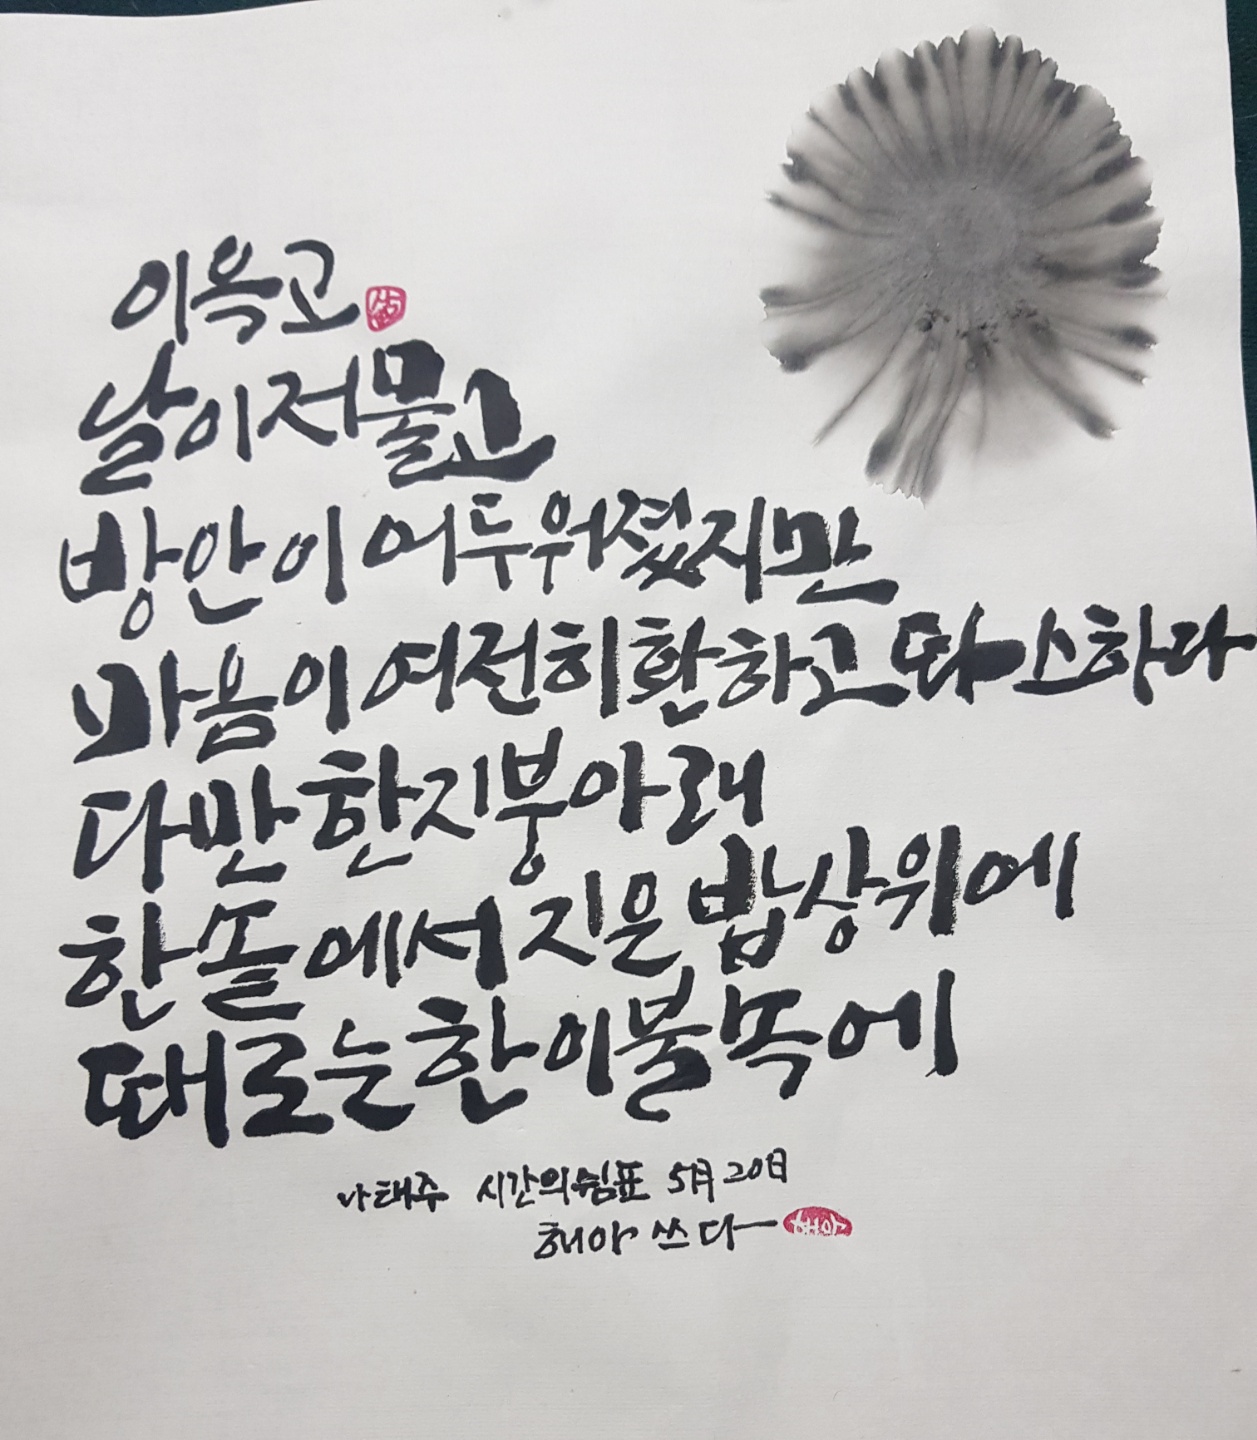 이윽고
날이 저물고
방안이 어두워졌지만
마음이 여전히 환하고 따스하다
다만 한지붕 아래
한솥에서 지은 밥상 위에
때로는 한 이불 속에
나태주 시간의 쉼표 5月 20日
해아 쓰다